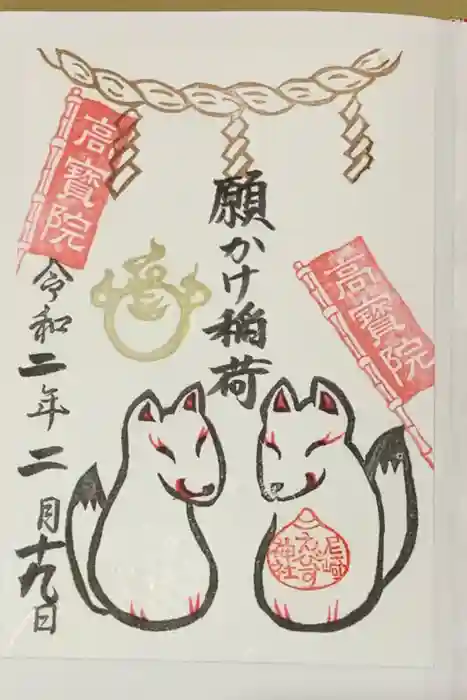 高寶院
願かけ稲荷
高寶院
令和二年二月十九日
尼崎
えびす
神社